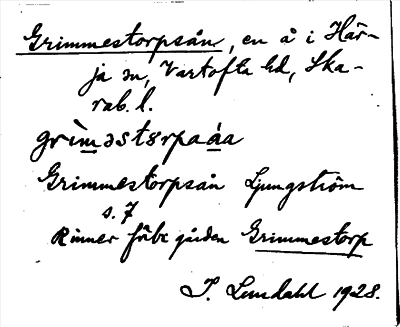 Grimmestorpsån, en å i Här-
ja sn, Vartofta hd, Ska-
rab. l.
grìməstɤrpaáa
Grimmestorpsån Ljungström
s. 7
Rinner förbi gården Grimmestorp
I. Lundahl 1928.